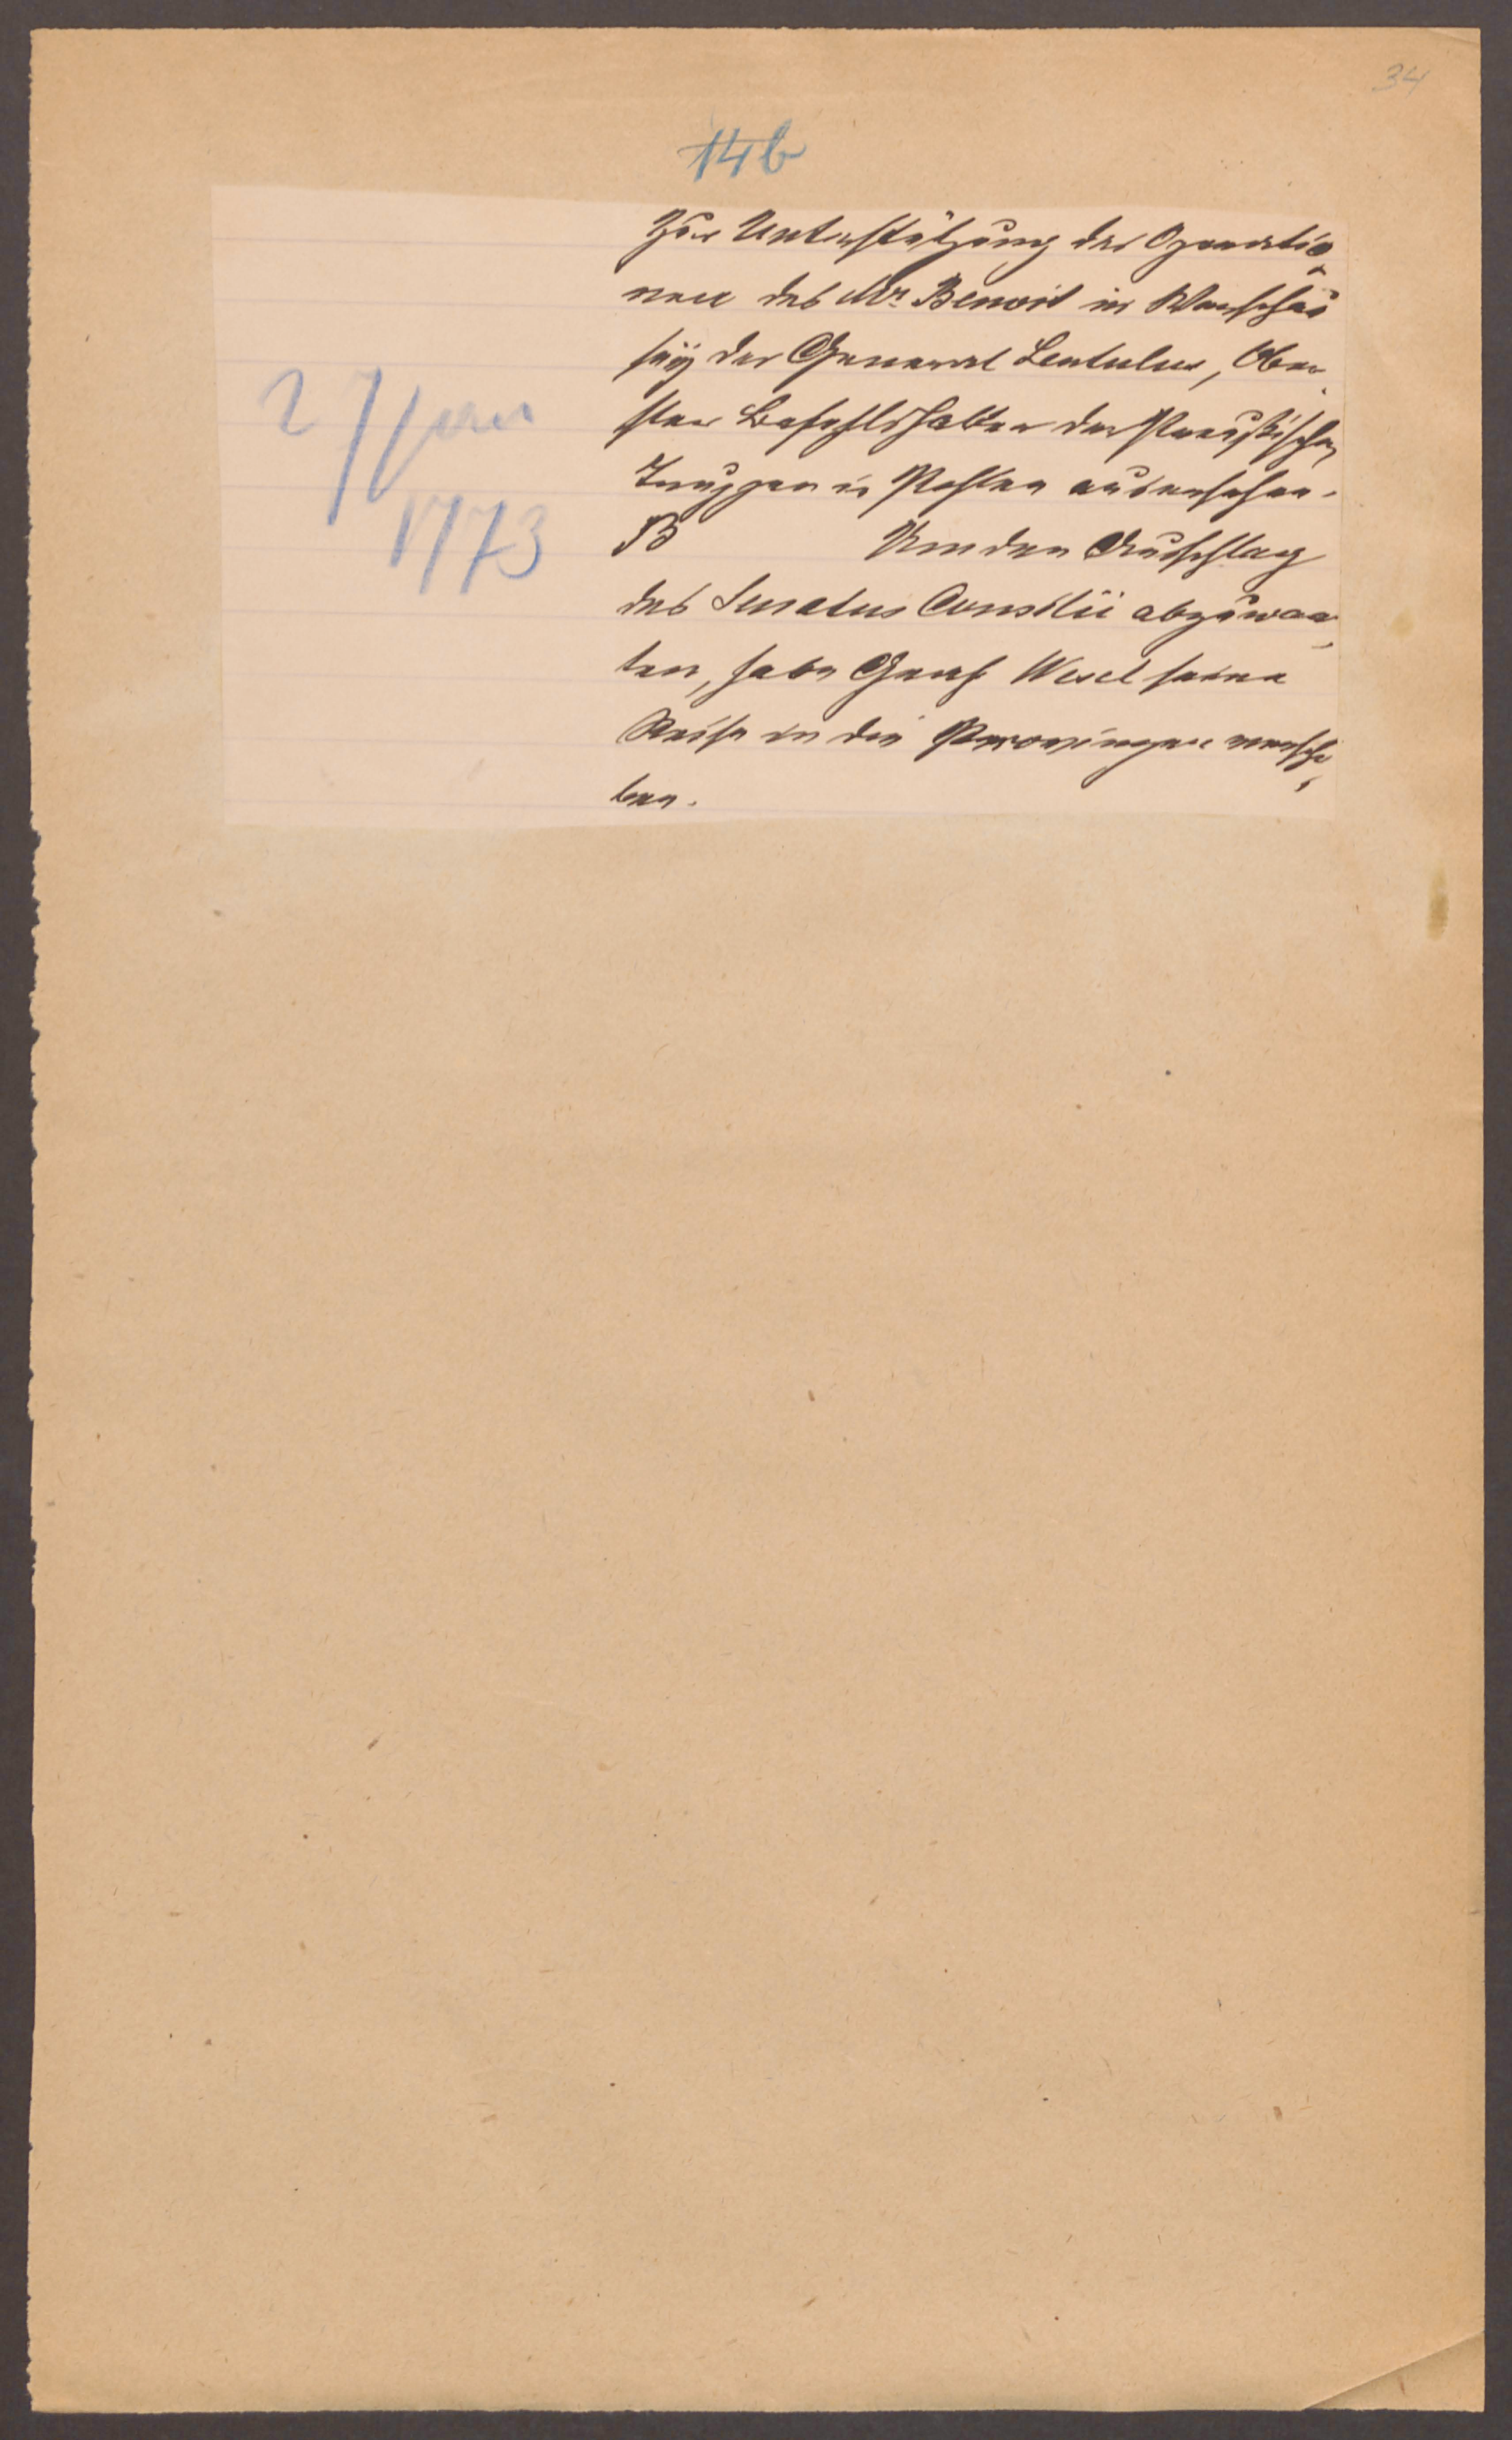 34
14b
Zur Unterstützung der Operatio
nen des Mr. Benoit in Warschau
seÿ der General Lentulus, Ober
ster Befehlshaber der Preußischen
Truppen in Pohlen ausersehen.
27 Jan
1773
B Um den Ausschlag
des Senatus Consilii abzuwar
ten, habe Graf Wesel seine
Reise in die Provinzen verscho
ben.